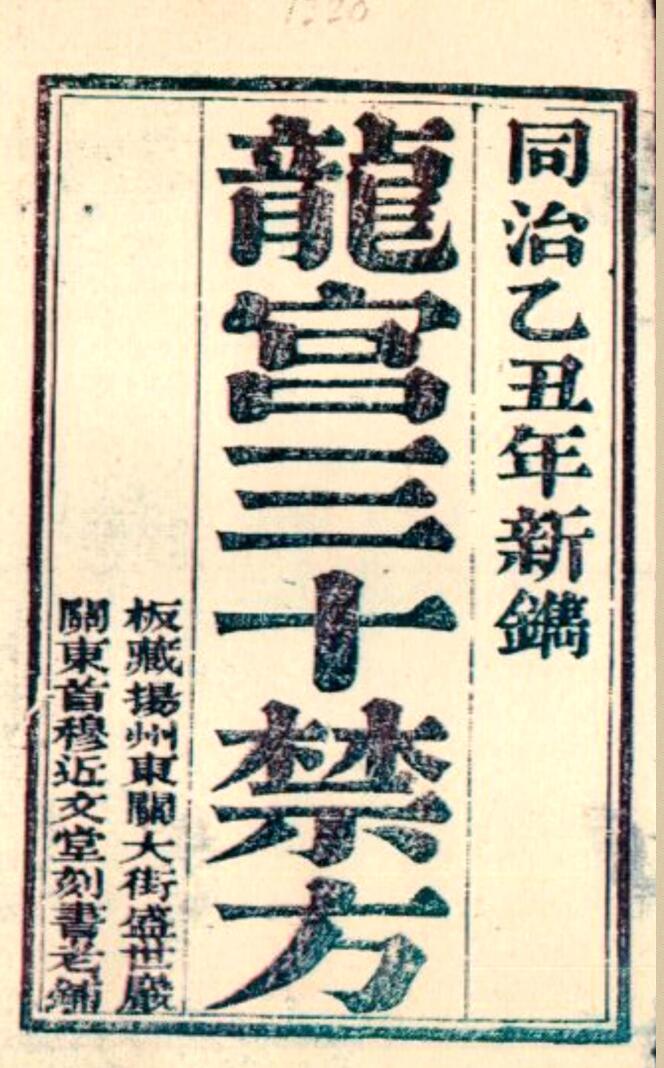 同治乙丑年新鐫
龍宮三十禁方
板藏揚州東關大街盛世巖
關東首穆近文堂刻書老鋪